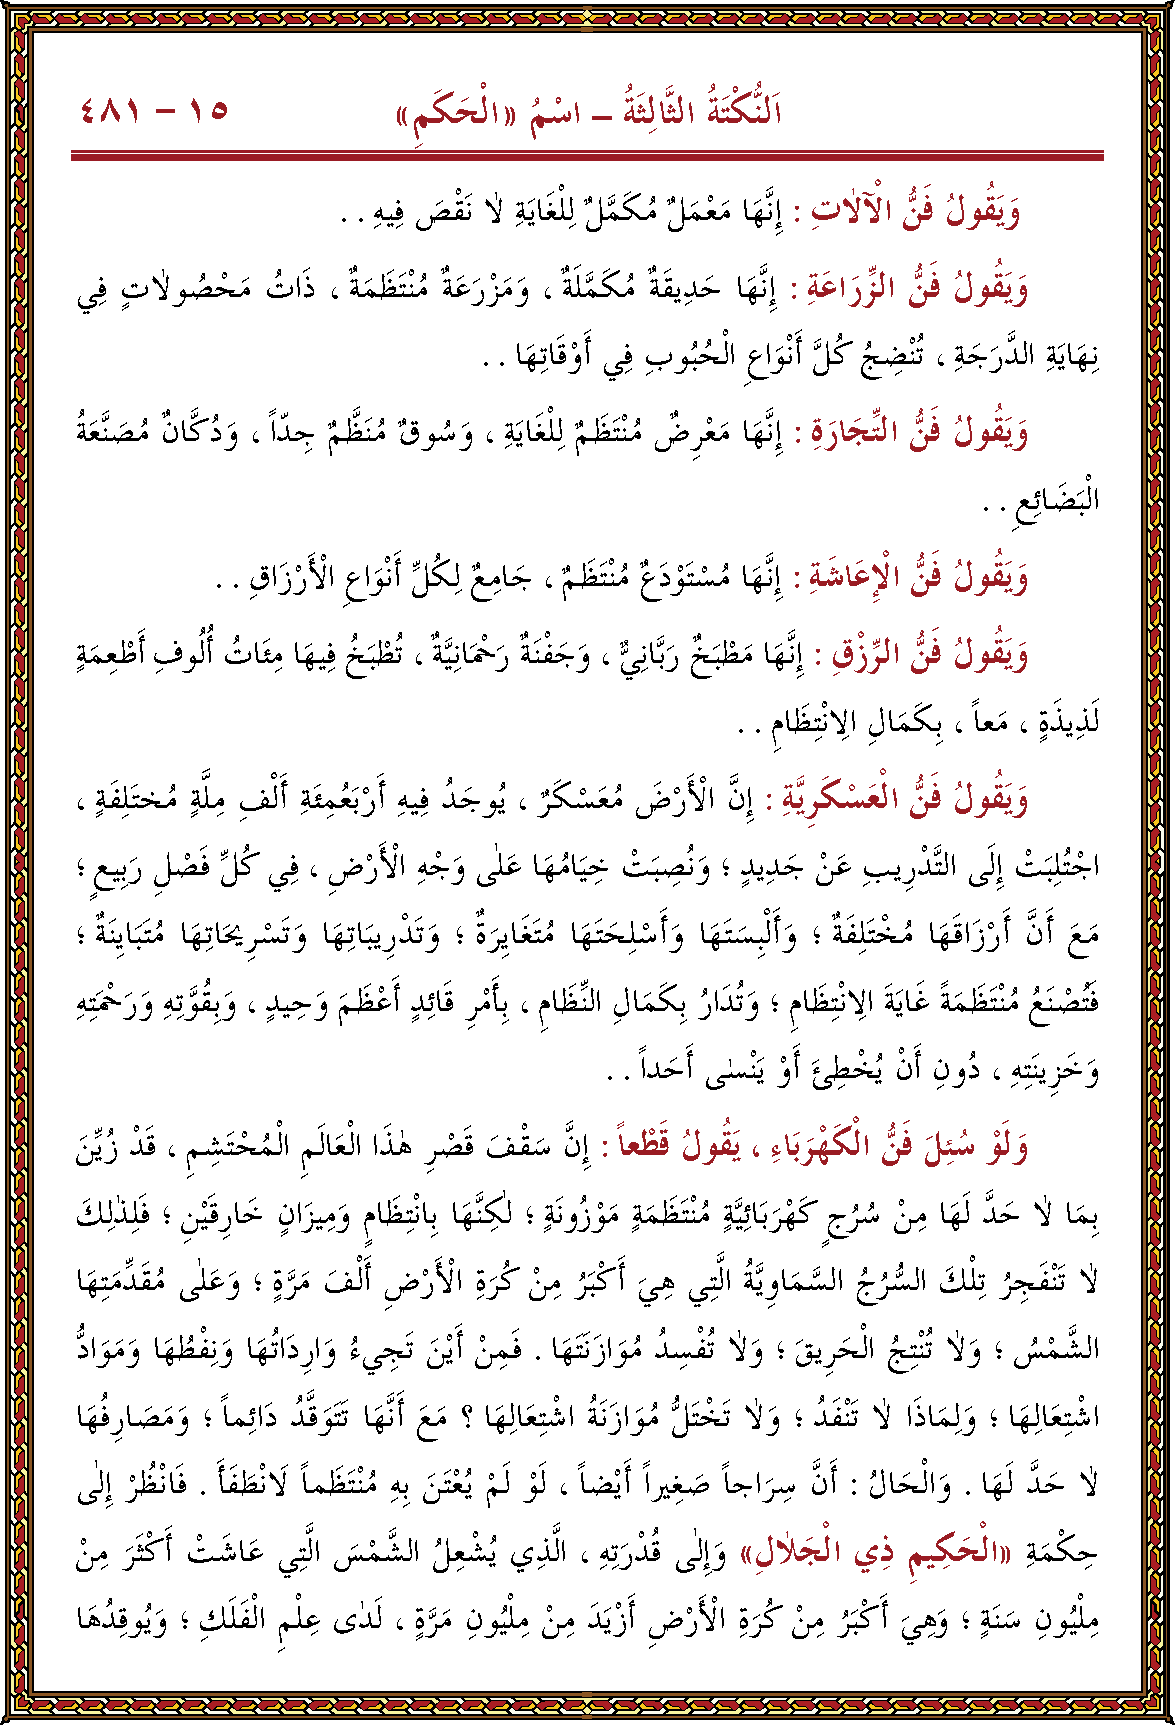 اَلنُّكْتَةُ الثَّالِثَةُ – اسْمُ «الْحَكَمِ» ١٥ – ٤٨١
وَيَقُولُ فَنُّ الْآلَاتِ : إِنَّهَا مَعْمَلٌ مُكَمَّلٌ لِلْغَايَةِ لَا نَقْصَ فِيهِ . .
وَيَقُولُ فَنُّ الزِّرَاعَةِ : إِنَّهَا حَدِيقَةٌ مُكَمَّلَةٌ ، وَمَزْرَعَةٌ مُنْتَظَمَةٌ ، ذَاتُ مَحْصُولَاتٍ فِي
نِهَايَةِ الدَّرَجَةِ ، تُنْضِجُ كُلَّ أَنْوَاعِ الْحُبُوبِ فِي أَوْقَاتِهَا . .
وَيَقُولُ فَنُّ التِّجَارَةِ : إِنَّهَا مَعْرِضٌ مُنْتَظَمٌ لِلْغَايَةِ ، وَسُوقٌ مُنَظَّمٌ جِدّاً ، وَدُكَّانٌ مُصَنَّعَةُ
الْبَضَائِعِ . .
وَيَقُولُ فَنُّ الْإِعَاشَةِ : إِنَّهَا مُسْتَوْدَعٌ مُنْتَظَمٌ ، جَامِعٌ لِكُلِّ أَنْوَاعِ الْأَرْزَاقِ . .
وَيَقُولُ فَنُّ الرِّزْقِ : إِنَّهَا مَطْبَخٌ رَبَّانِيٌّ ، وَجَفْنَةٌ رَحْمَانِيَّةٌ ، تُطْبَخُ فِيهَا مِئَاتُ أُلُوفِ أَطْعِمَةٍ
لَذِيذَةٍ ، مَعاً ، بِكَمَالِ الِانْتِظَامِ . .
وَيَقُولُ فَنُّ الْعَسْكَرِيَّةِ : إِنَّ الْأَرْضَ مُعَسْكَرٌ ، يُوجَدُ فِيهِ أَرْبَعُمِئَةِ أَلْفِ مِلَّةٍ مُختَلِفَةٍ ،
اجْتُلِبَتْ إِلَى التَّدْرِيبِ عَنْ جَدِيدٍ ؛ وَنُصِبَتْ خِيَامُهَا عَلٰى وَجْهِ الْأَرْضِ ، فِي كُلِّ فَصْلِ رَبِيعٍ ؛
مَعَ أَنَّ أَرْزَاقَهَا مُخْتَلِفَةٌ ؛ وَأَلْبِسَتَهَا وَأَسْلِحَتَهَا مُتَغَايِرَةٌ ؛ وَتَدْرِيبَاتِهَا وَتَسْرِيحَاتِهَا مُتَبَايِنَةٌ ؛
فَتُصْنَعُ مُنْتَظَمَةً غَايَةَ الِانْتِظَامِ ؛ وَتُدَارُ بِكَمَالِ النِّظَامِ ، بِأَمْرِ قَائِدٍ أَعْظَمَ وَحِيدٍ ، وَبِقُوَّتِهِ وَرَحْمَتِهِ
وَخَزِينَتِهِ ، دُونِ أَنْ يُخْطِئَ أَوْ يَنْسٰى أَحَداً . .
وَلَوْ سُئِلَ فَنُّ الْكَهْرَبَاءِ ، يَقُولُ قَطْعاً : إِنَّ سَقْفَ قَصْرِ هٰذَا الْعَالَمِ الْمُحْتَشِمِ ، قَدْ زُيِّنَ
بِمَا لَا حَدَّ لَهَا مِنْ سُرُجٍ كَهْرَبَائِيَّةٍ مُنْتَظَمَةٍ مَوْزُونَةٍ ؛ لٰكِنَّهَا بِانْتِظَامٍ وَمِيزَانٍ خَارِقَيْنِ ؛ فَلِذٰلِكَ
لَا تَنْفَجِرُ تِلْكَ السُّرُجُ السَّمَاوِيَّةُ الَّتِي هِيَ أَكْبَرُ مِنْ كُرَةِ الْأَرْضِ أَلْفَ مَرَّةٍ ؛ وَعَلٰى مُقَدِّمَتِهَا
الشَّمْسُ ؛ وَلَا تُنْتِجُ الْحَرِيقَ ؛ وَلَا تُفْسِدُ مُوَازَنَتَهَا . فَمِنْ أَيْنَ تَجِيءُ وَارِدَاتُهَا وَنِفْطُهَا وَمَوَادُّ
اشْتِعَالِهَا ؛ وَلِمَاذَا لَا تَنْفَدُ ؛ وَلَا تَخْتَلُّ مُوَازَنَةُ اشْتِعَالِهَا ؟ مَعَ أَنَّهَا تَتَوَقَّدُ دَائِماً ؛ وَمَصَارِفُهَا
لَا حَدَّ لَهَا . وَالْحَالُ : أَنَّ سِرَاجاً صَغِيراً أَيْضاً ، لَوْ لَمْ يُعْتَنَ بِهِ مُنْتَظَماً لَانْطَفَأَ . فَانْظُرْ إِلٰى
حِكْمَةِ «الْحَكِيمِ ذِي الْجَلَالِ» وَإِلٰى قُدْرَتِهِ ، الَّذِي يُشْعِلُ الشَّمْسَ الَّتِي عَاشَتْ أَكْثَرَ مِنْ
مِلْيُونِ سَنَةٍ ؛ وَهِيَ أَكْبَرُ مِنْ كُرَةِ الْأَرْضِ أَزْيَدَ مِنْ مِلْيُونِ مَرَّةٍ ، لَدٰى عِلْمِ الْفَلَكِ ؛ وَيُوقِدُهَا